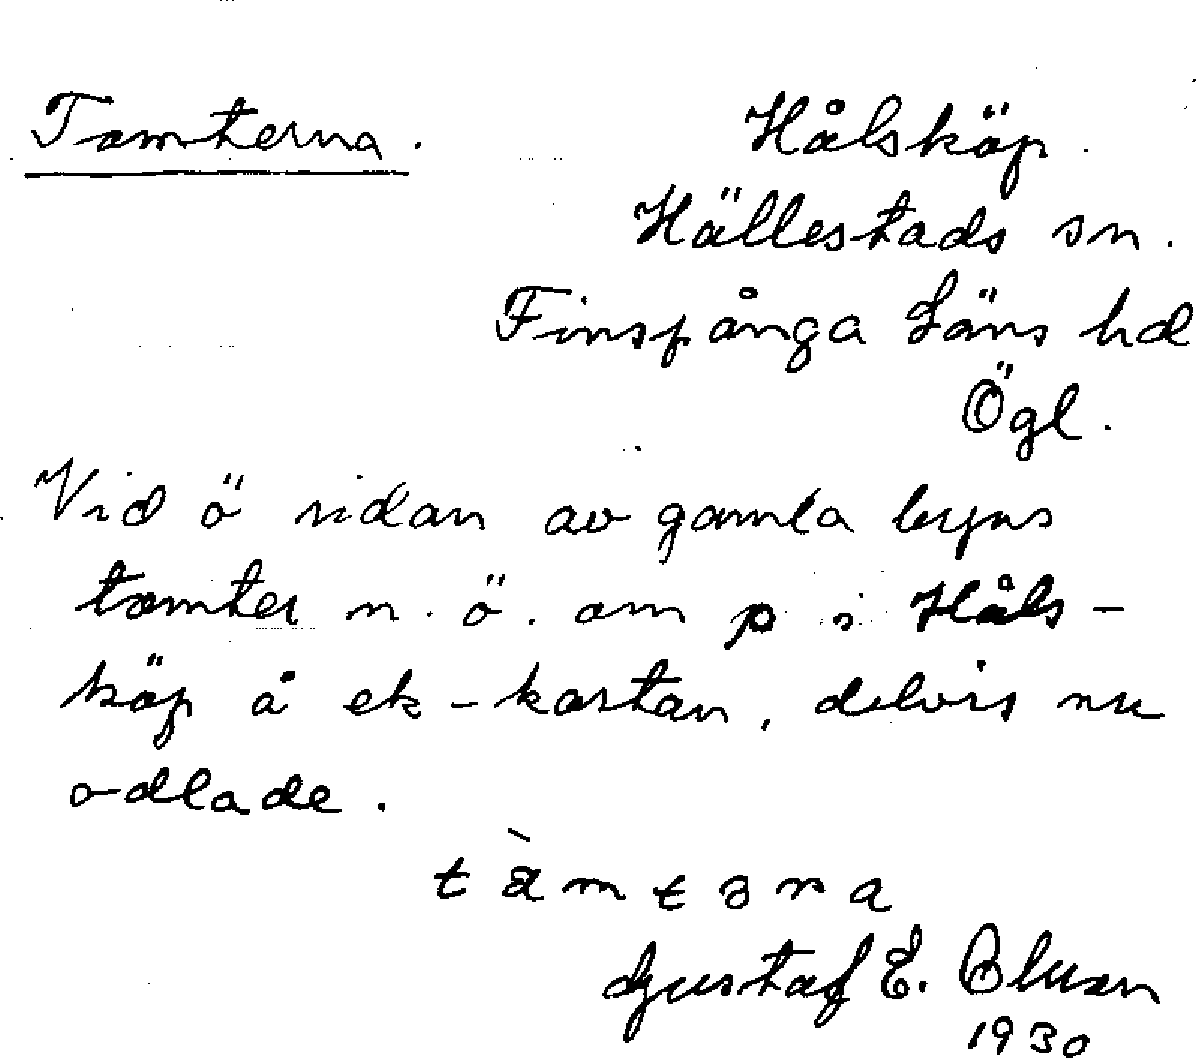 Tomterna.
Hålsköp.
Hällestads sn.
Finspånga Läns hd
Ögl.
Vid ö sidan av gamla byns
tomter n.ö. om p i Håls-
köp å ek-kartan, delvis nu
odlade.
t à m t ɜ n a
Gustaf E. Olson
1930